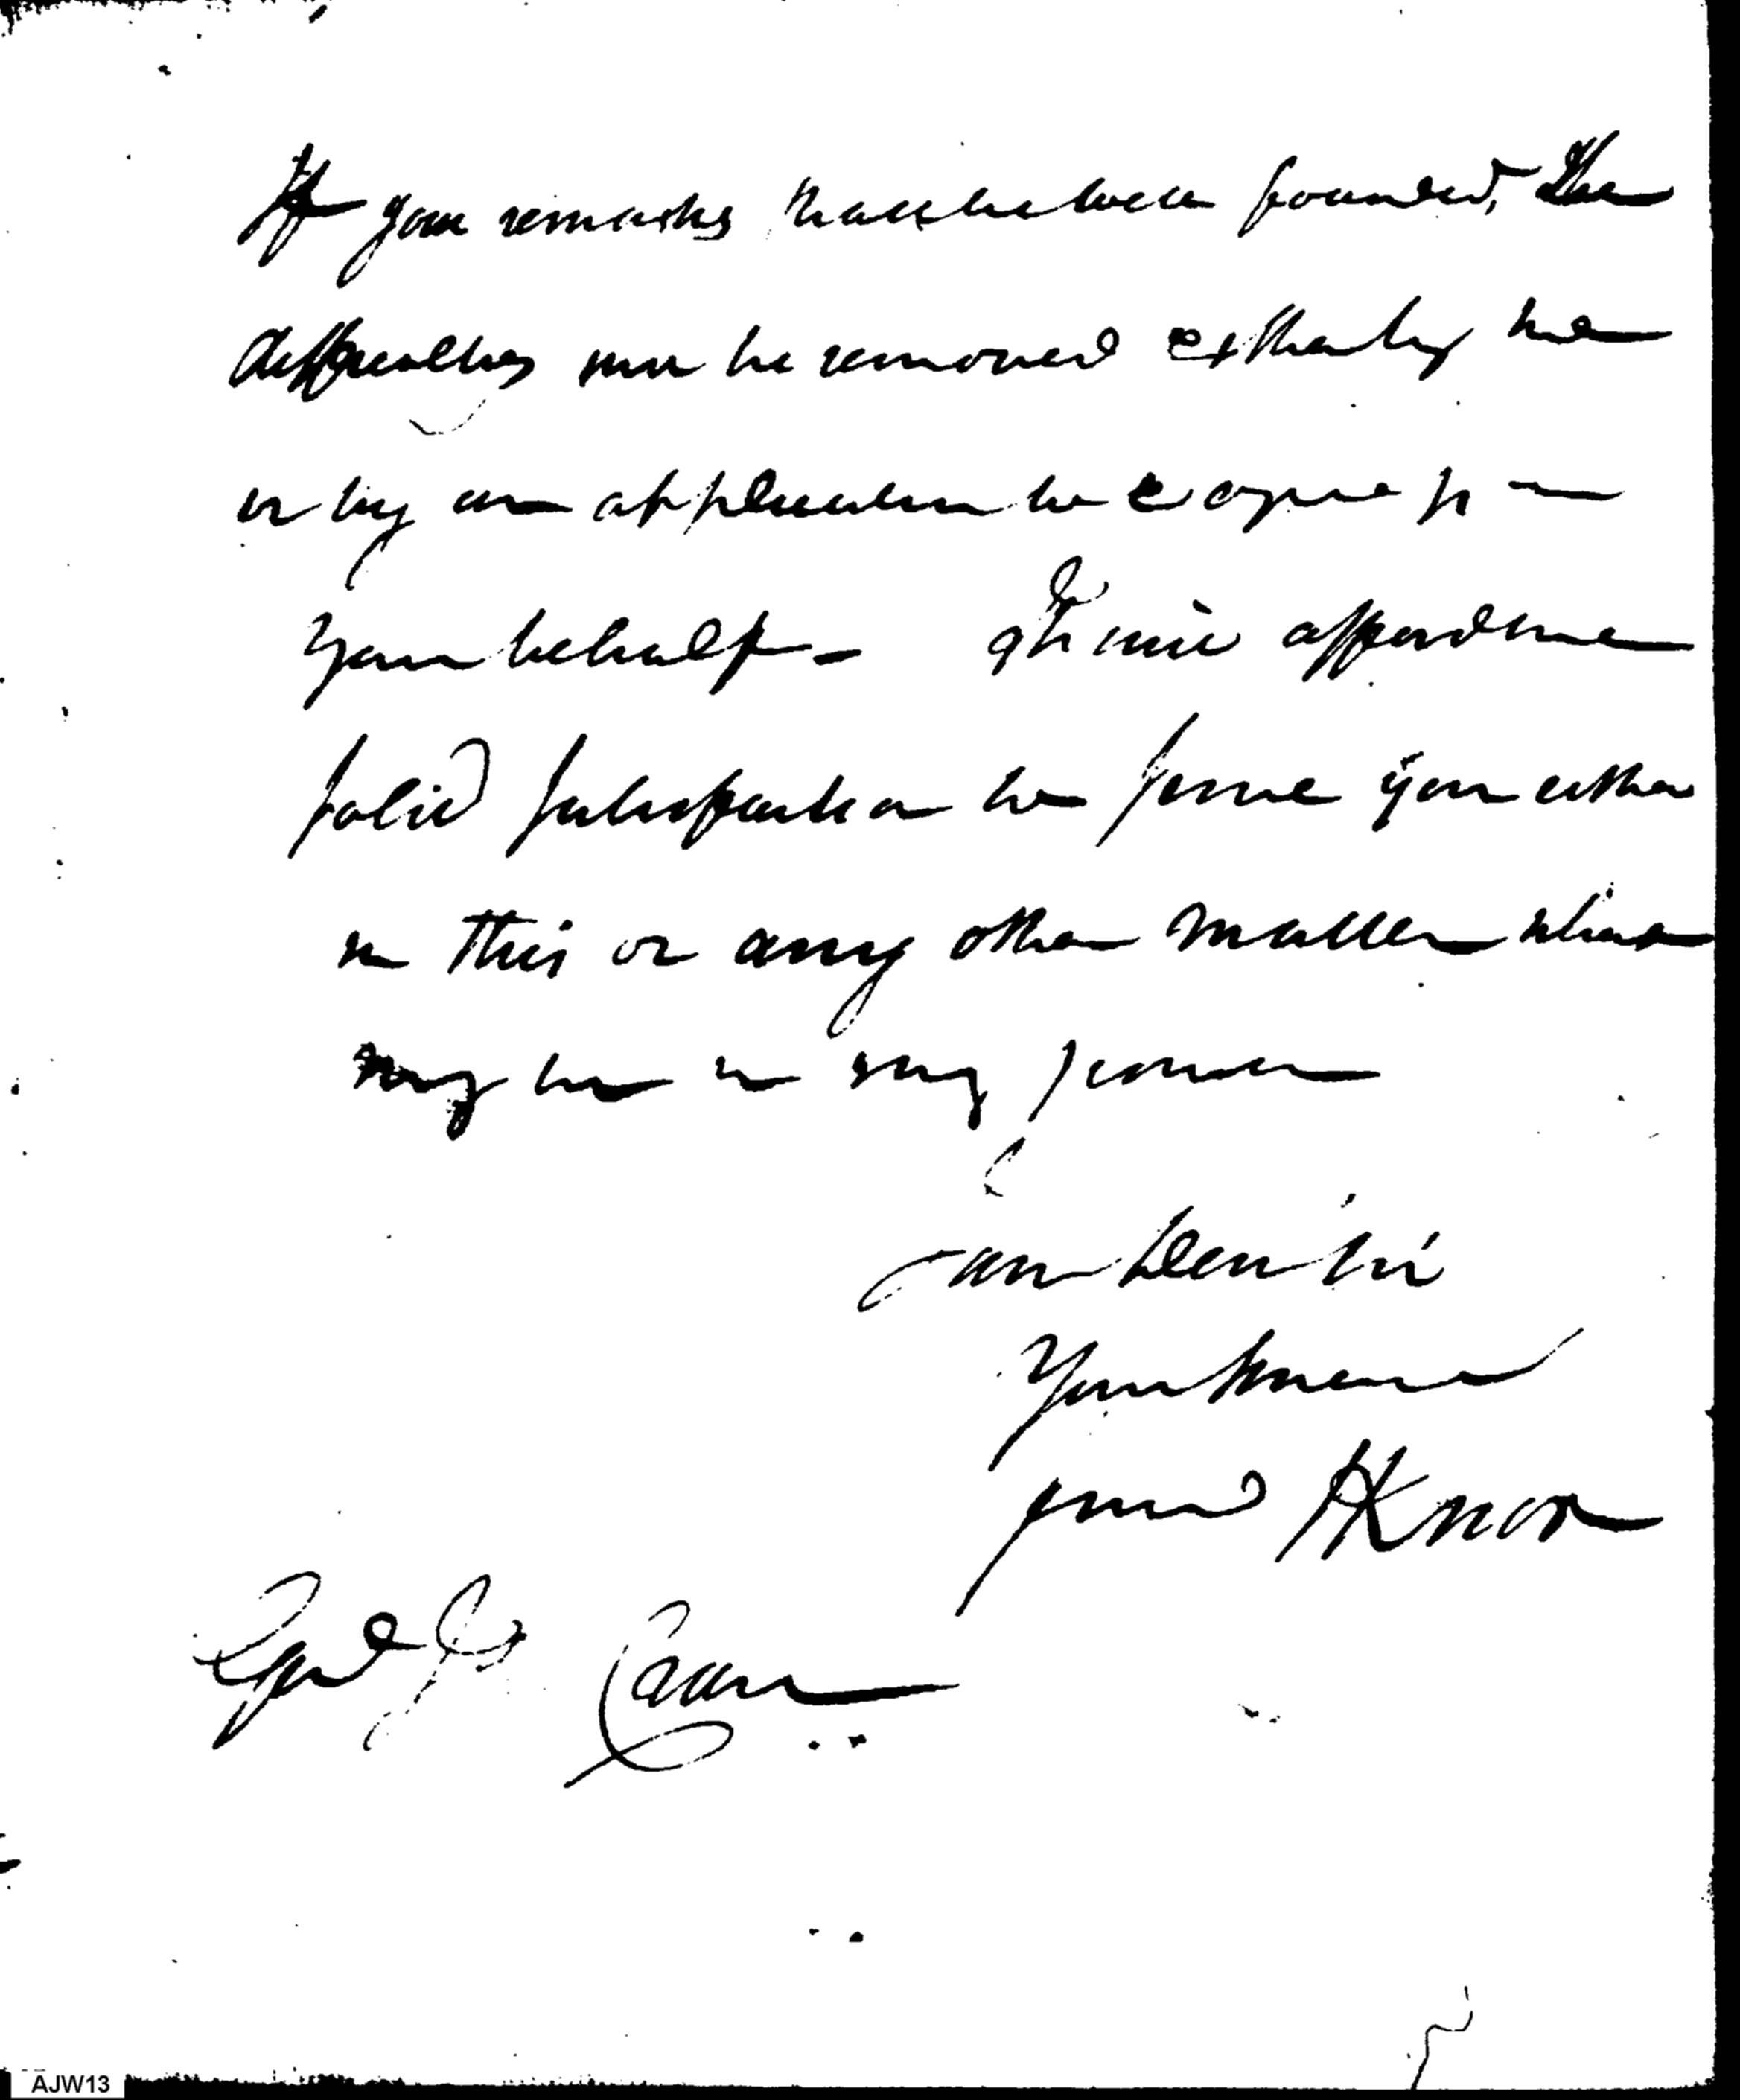 If your remarks shall be well founded, the
difficulties will be removed either by me
or by an application to Congress in
your behalf – It will afford me
solid satisfaction to serve you either
in this or any other matter which
may be in my power
I am Dear Sir
Your humble
servt HKnox
AJW13